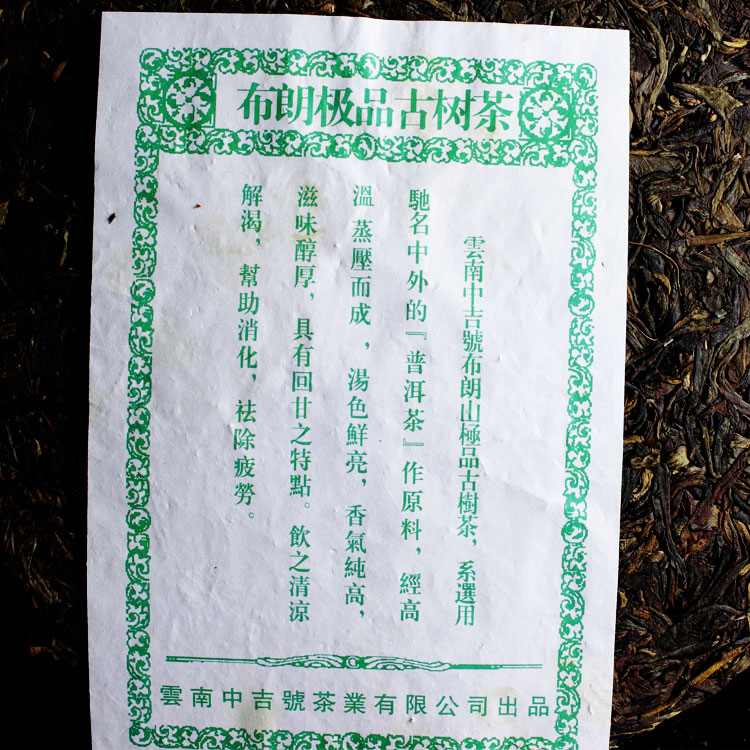 布朗极品古树茶
雲南中吉號布朗山極品古樹茶，系選用
馳名中外的『普洱茶』作原料，經高
溫蒸壓而成，湯色鮮亮，香氣純高，
滋味醇厚，具有回甘之特點。飲之清涼
解渴，幫助消化，祛除疲勞。
雲南中吉號茶業有限公司出品